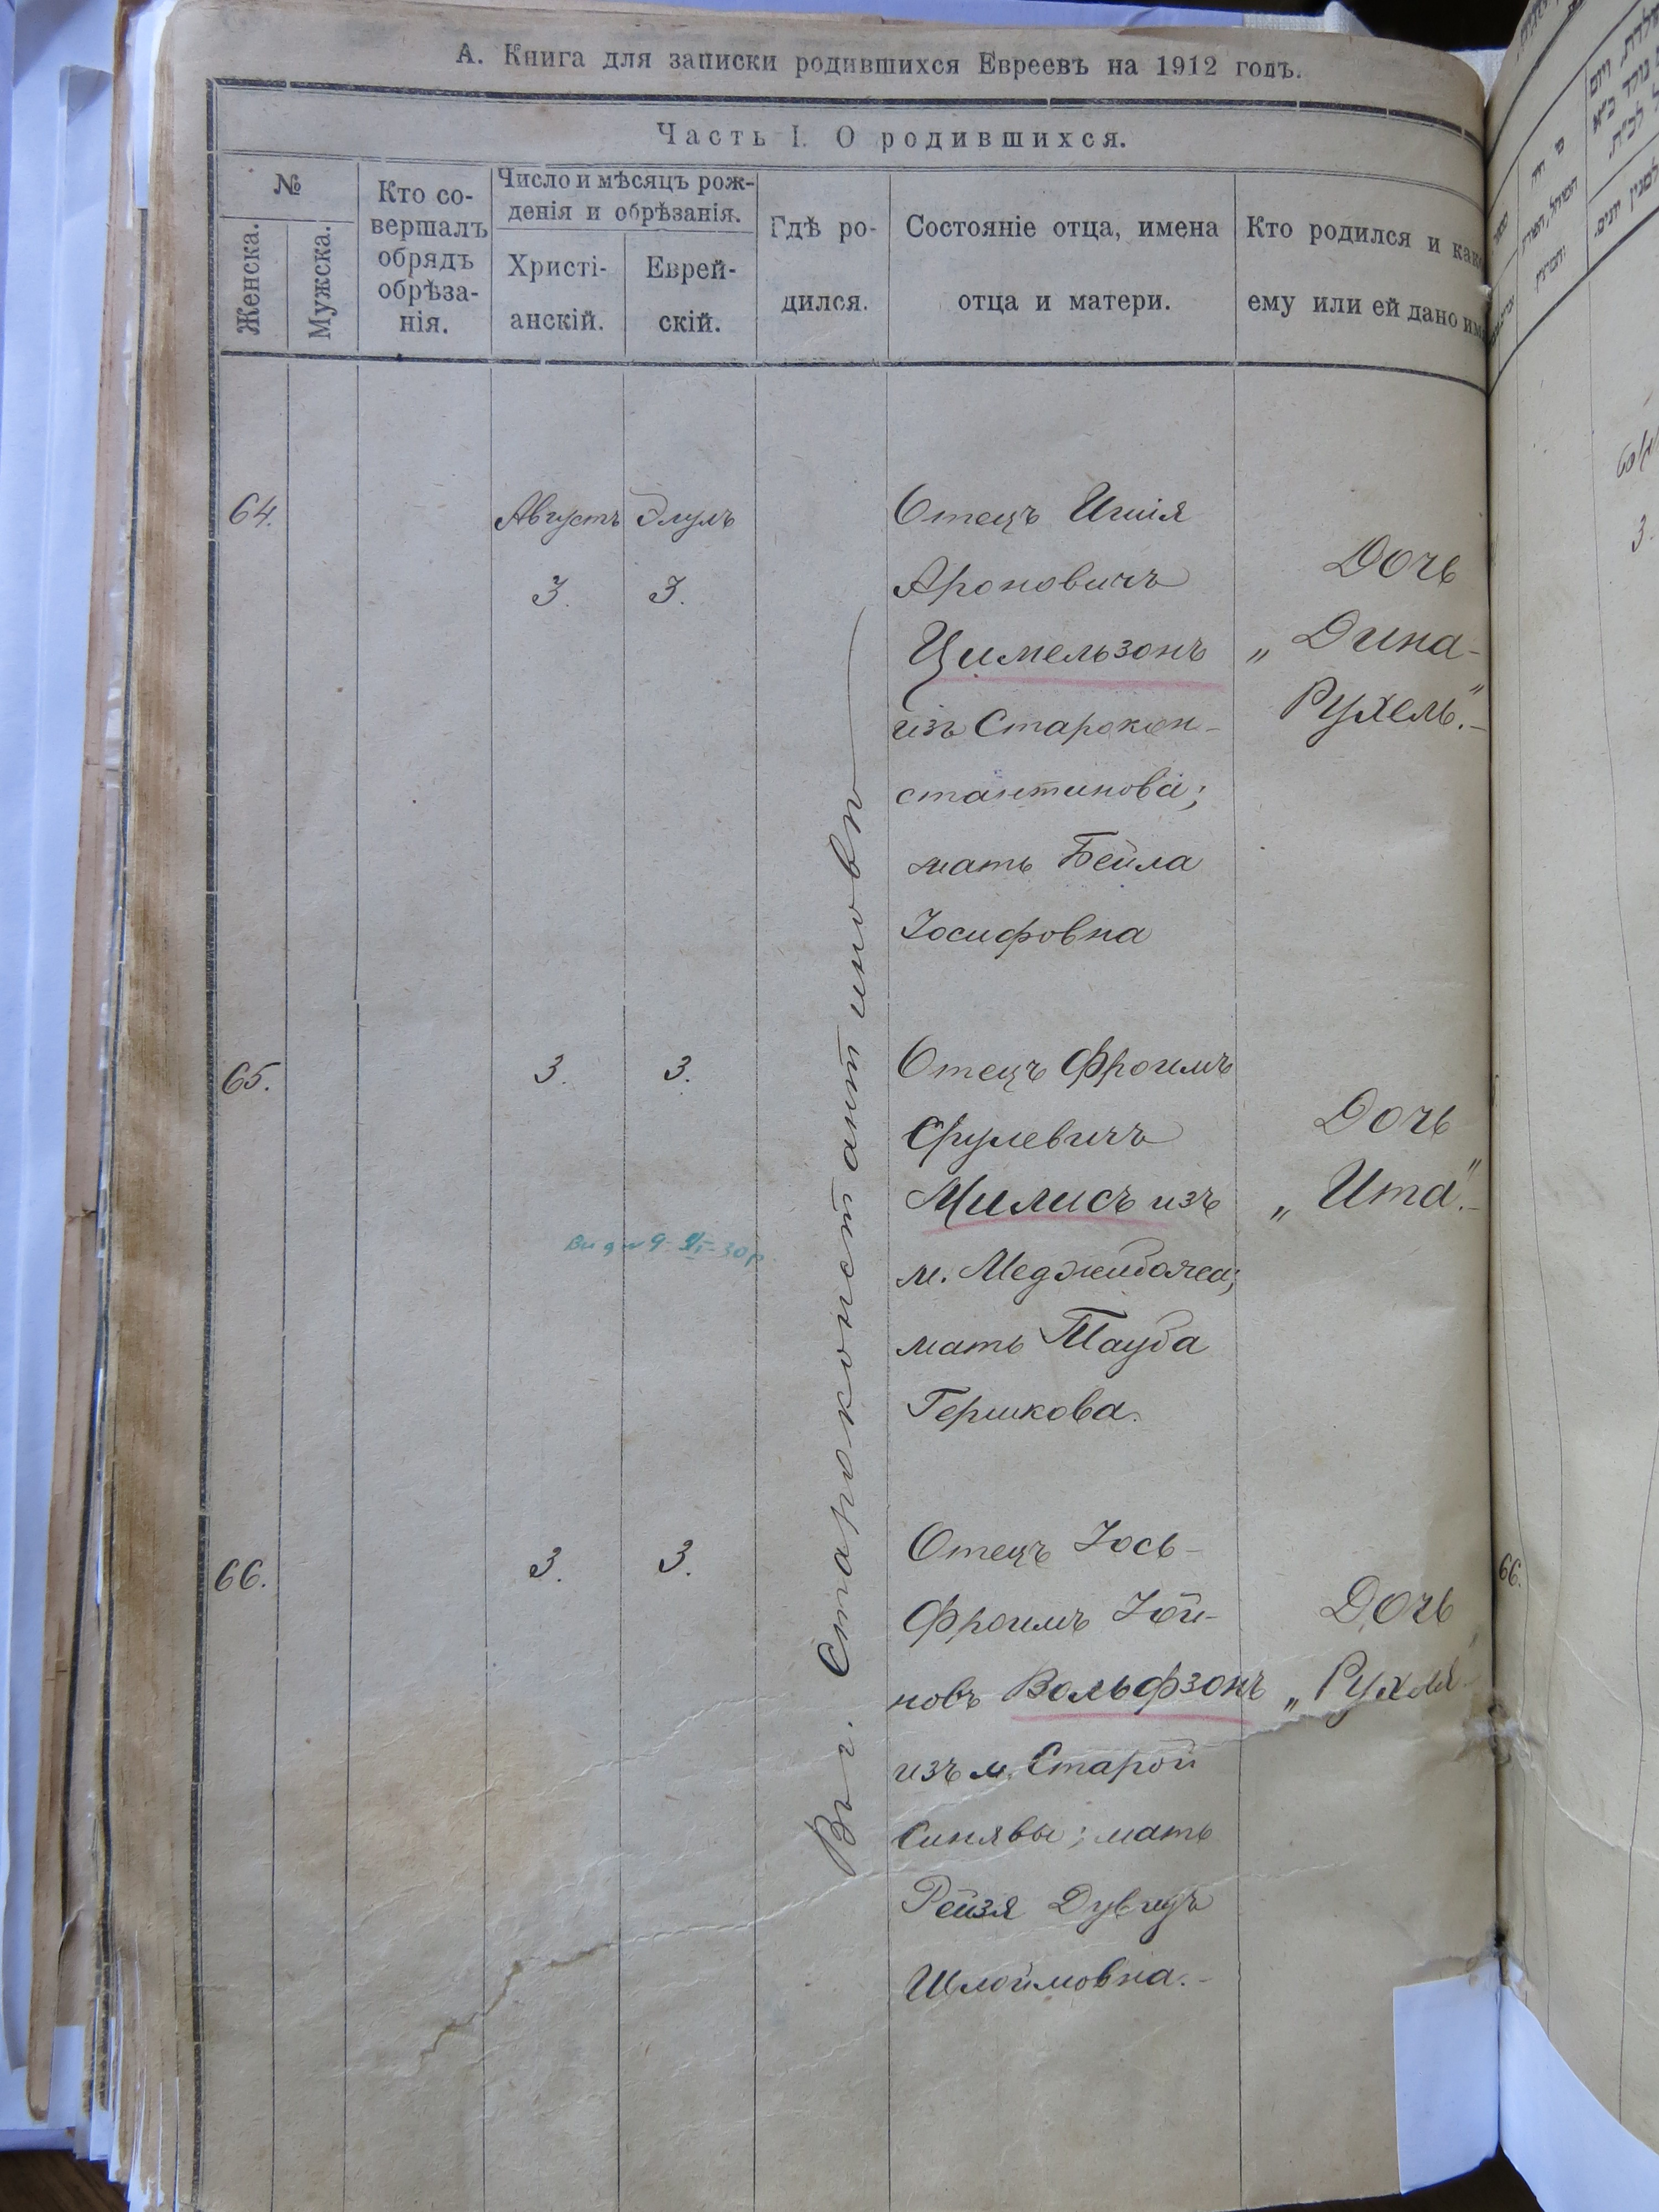 А. Книга для записки родившихся Евреевъ на 1912 годъ.
Часть I. О родившихся.
№
Женска.
Мужска.
Кто со-
вершалъ
обрядъ
обрѣза-
нія.
Число и мѣсяцъ рож-
денія и обрѣзанія.
Христі-
анскій.
Еврей-
скій.
Гдѣ ро-
дился.
Состояніе отца, имена
отца и матери.
Кто родился и как
ему или ей дано им
64.
Августъ
3.
Элулъ
3.
Въ г. Староконстантиновѣ
Отецъ Ишія
Ароновичъ
Цимельзонъ
изъ Старокон-
стантинова;
мать Бейла
Іосифовна
Дочь
„Дина-
Рухель".-
65.
3.
3.
Отецъ Фроимъ
Срулевичъ
Милисъ изъ
м. Меджибожа;
мать Тауба
Гершкова.
Дочь
„Ита".-
66.
3.
3.
Отецъ Іось-
Фроимъ Іой-
новъ Вольфзонъ
изъ м. Старой
Синявы; мать
Рейзя Двунъ
Шлоймовна.-
Дочь
„Рухля
66.
3.